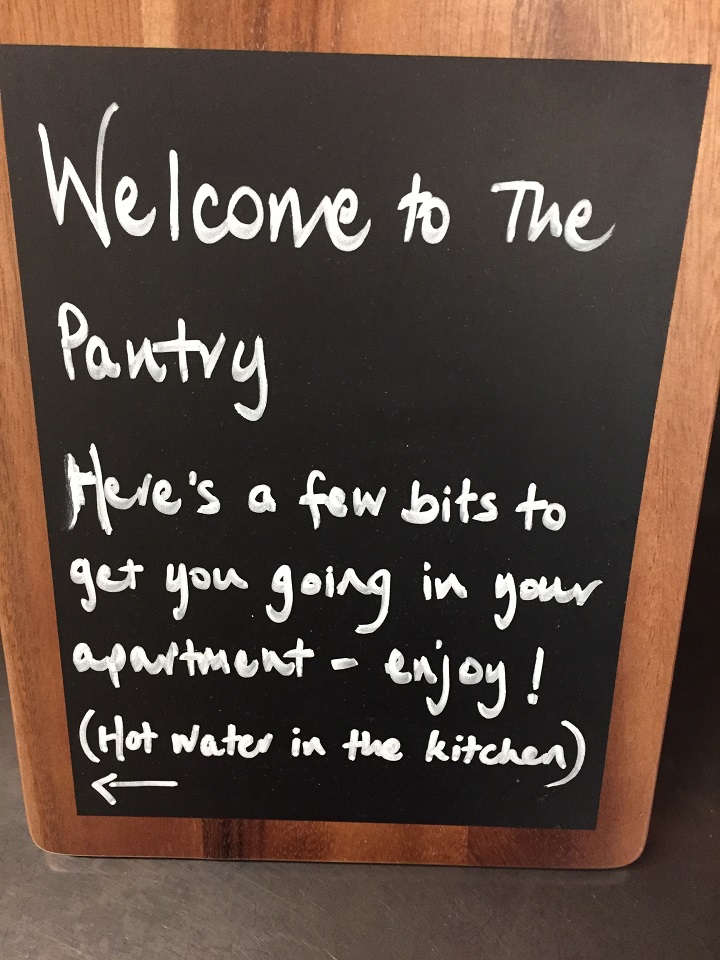 Welcome to The
Pantry
Here's a few bits to
get you going in your
apartment - enjoy!
(Hot water in the kitchen)
←